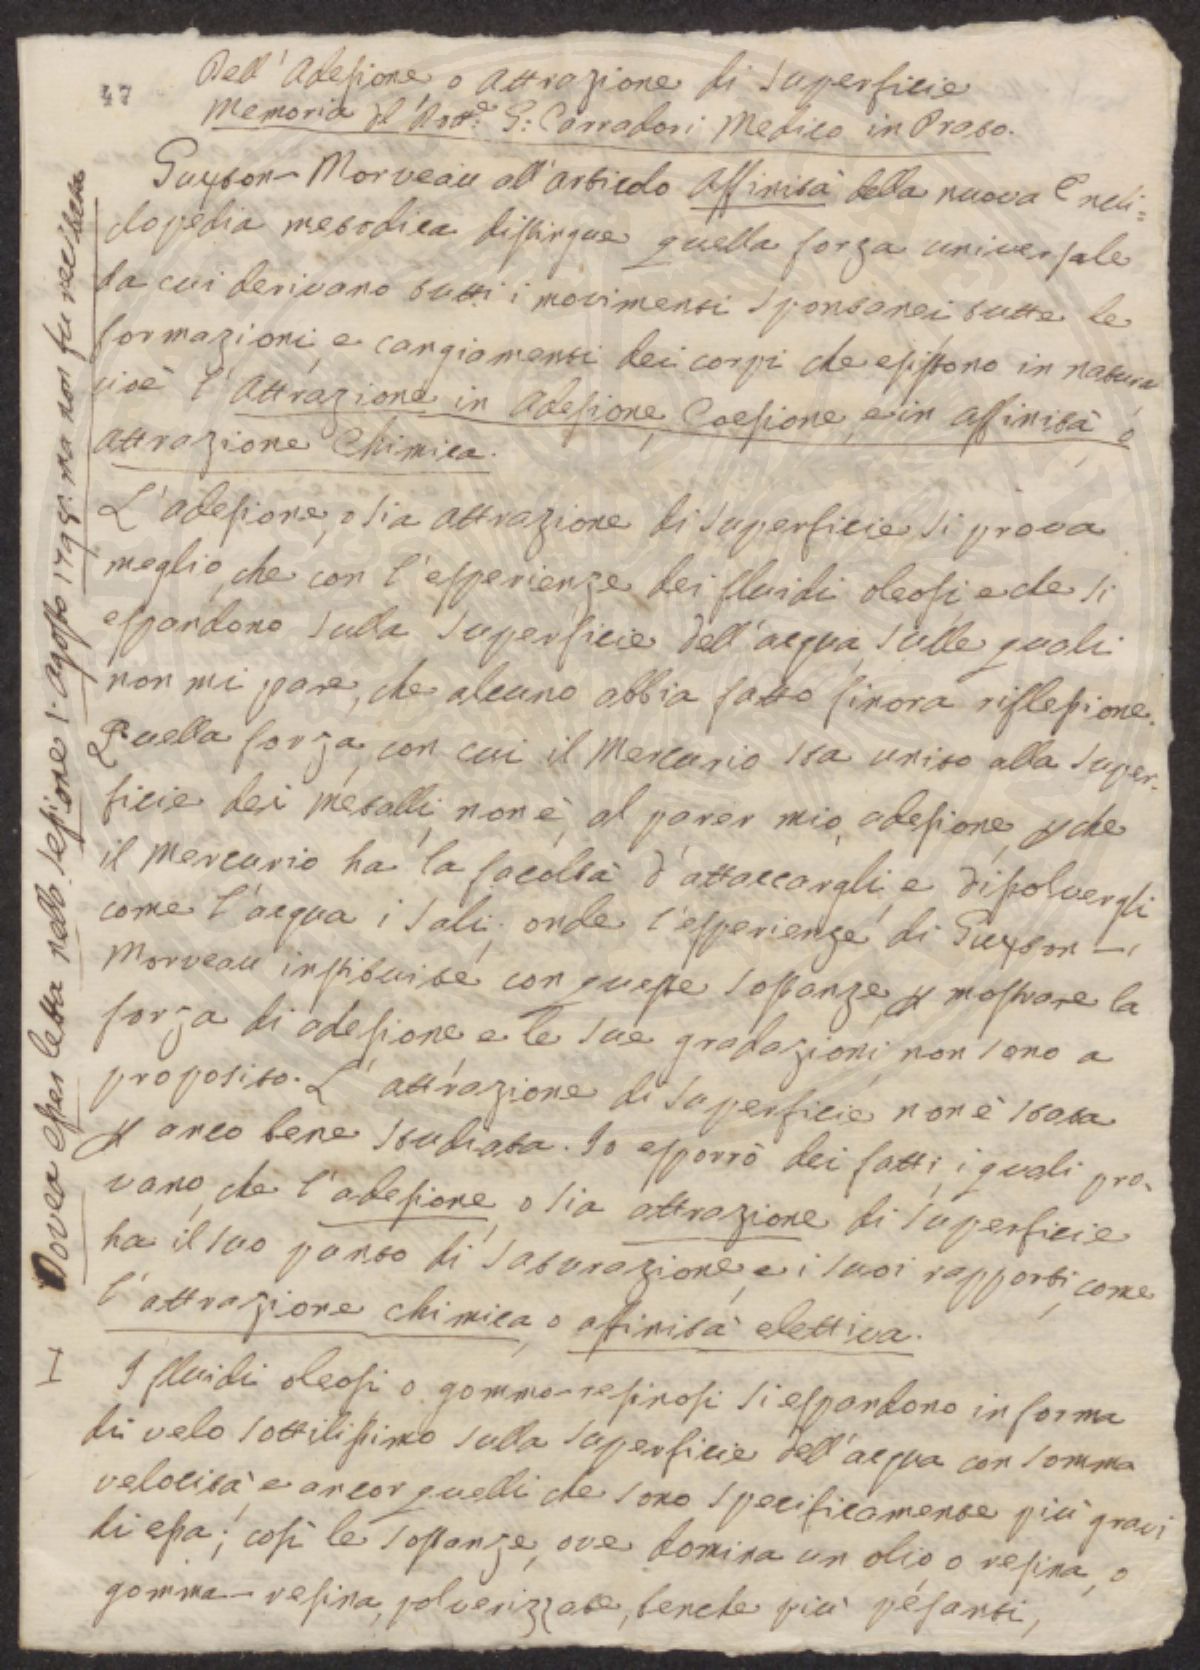 47
Dell'Adesione, o attrazione di superficie
Memoria del Dott.e G: Carradori Medico in Prato.
Guyton-Morveau all'articolo affinità della nuova Enci=
clopedia metodica distingue quella forza universale
da cui derivano tutti i movimenti spontanei tutte le
formazioni, e cangiamenti dei corpi che esistono in natura
cioè l'attrazione in adesione, Coesione, e in affinità o
attrazione Chimica.
L'adesione, o sia attrazione di superficie si prova
meglio, che con l'esperienze dei fluidi oleosi e che si
espandono sulla superficie dell'acqua, sulle quali
non mi pare, che alcuno abbia fatto finora riflessione.
Quella forza, con cui il Mercurio sta unito alla super-
ficie dei metalli, non è, al parer mio, adesione, p che
il Mercurio ha la facoltà d'attaccargli, e dissolvergli
come l'acqua i sali; onde l'esperienze di Guyton-
Morveau instituite con queste sostanze p mostrare la
forza di adesione e le sue gradazioni, non sono a
proposito. L'attrazione di superficie non è stata
p anco bene studiata. Io esporrò dei fatti, i quali pro-
vano, che l'adesione, o sia attrazione di superficie
ha il suo punto di saturazione, e i suoi rapporti, come
l'attrazione chimica, o affinità elettiva.
I I fluidi oleosi o gommo-resinosi si espandono in forma
di velo sottilissimo sulla superficie dell'acqua con somma
velocità, e ancor quelli che sono specificamente più gravi
di essa; così le sostanze, ove domina un olio, o resina, o
gomma-resina, polverizzate, benche più pesanti,
Dovea esser letta nella sessione 1. agosto 1798. ma non fu recitata